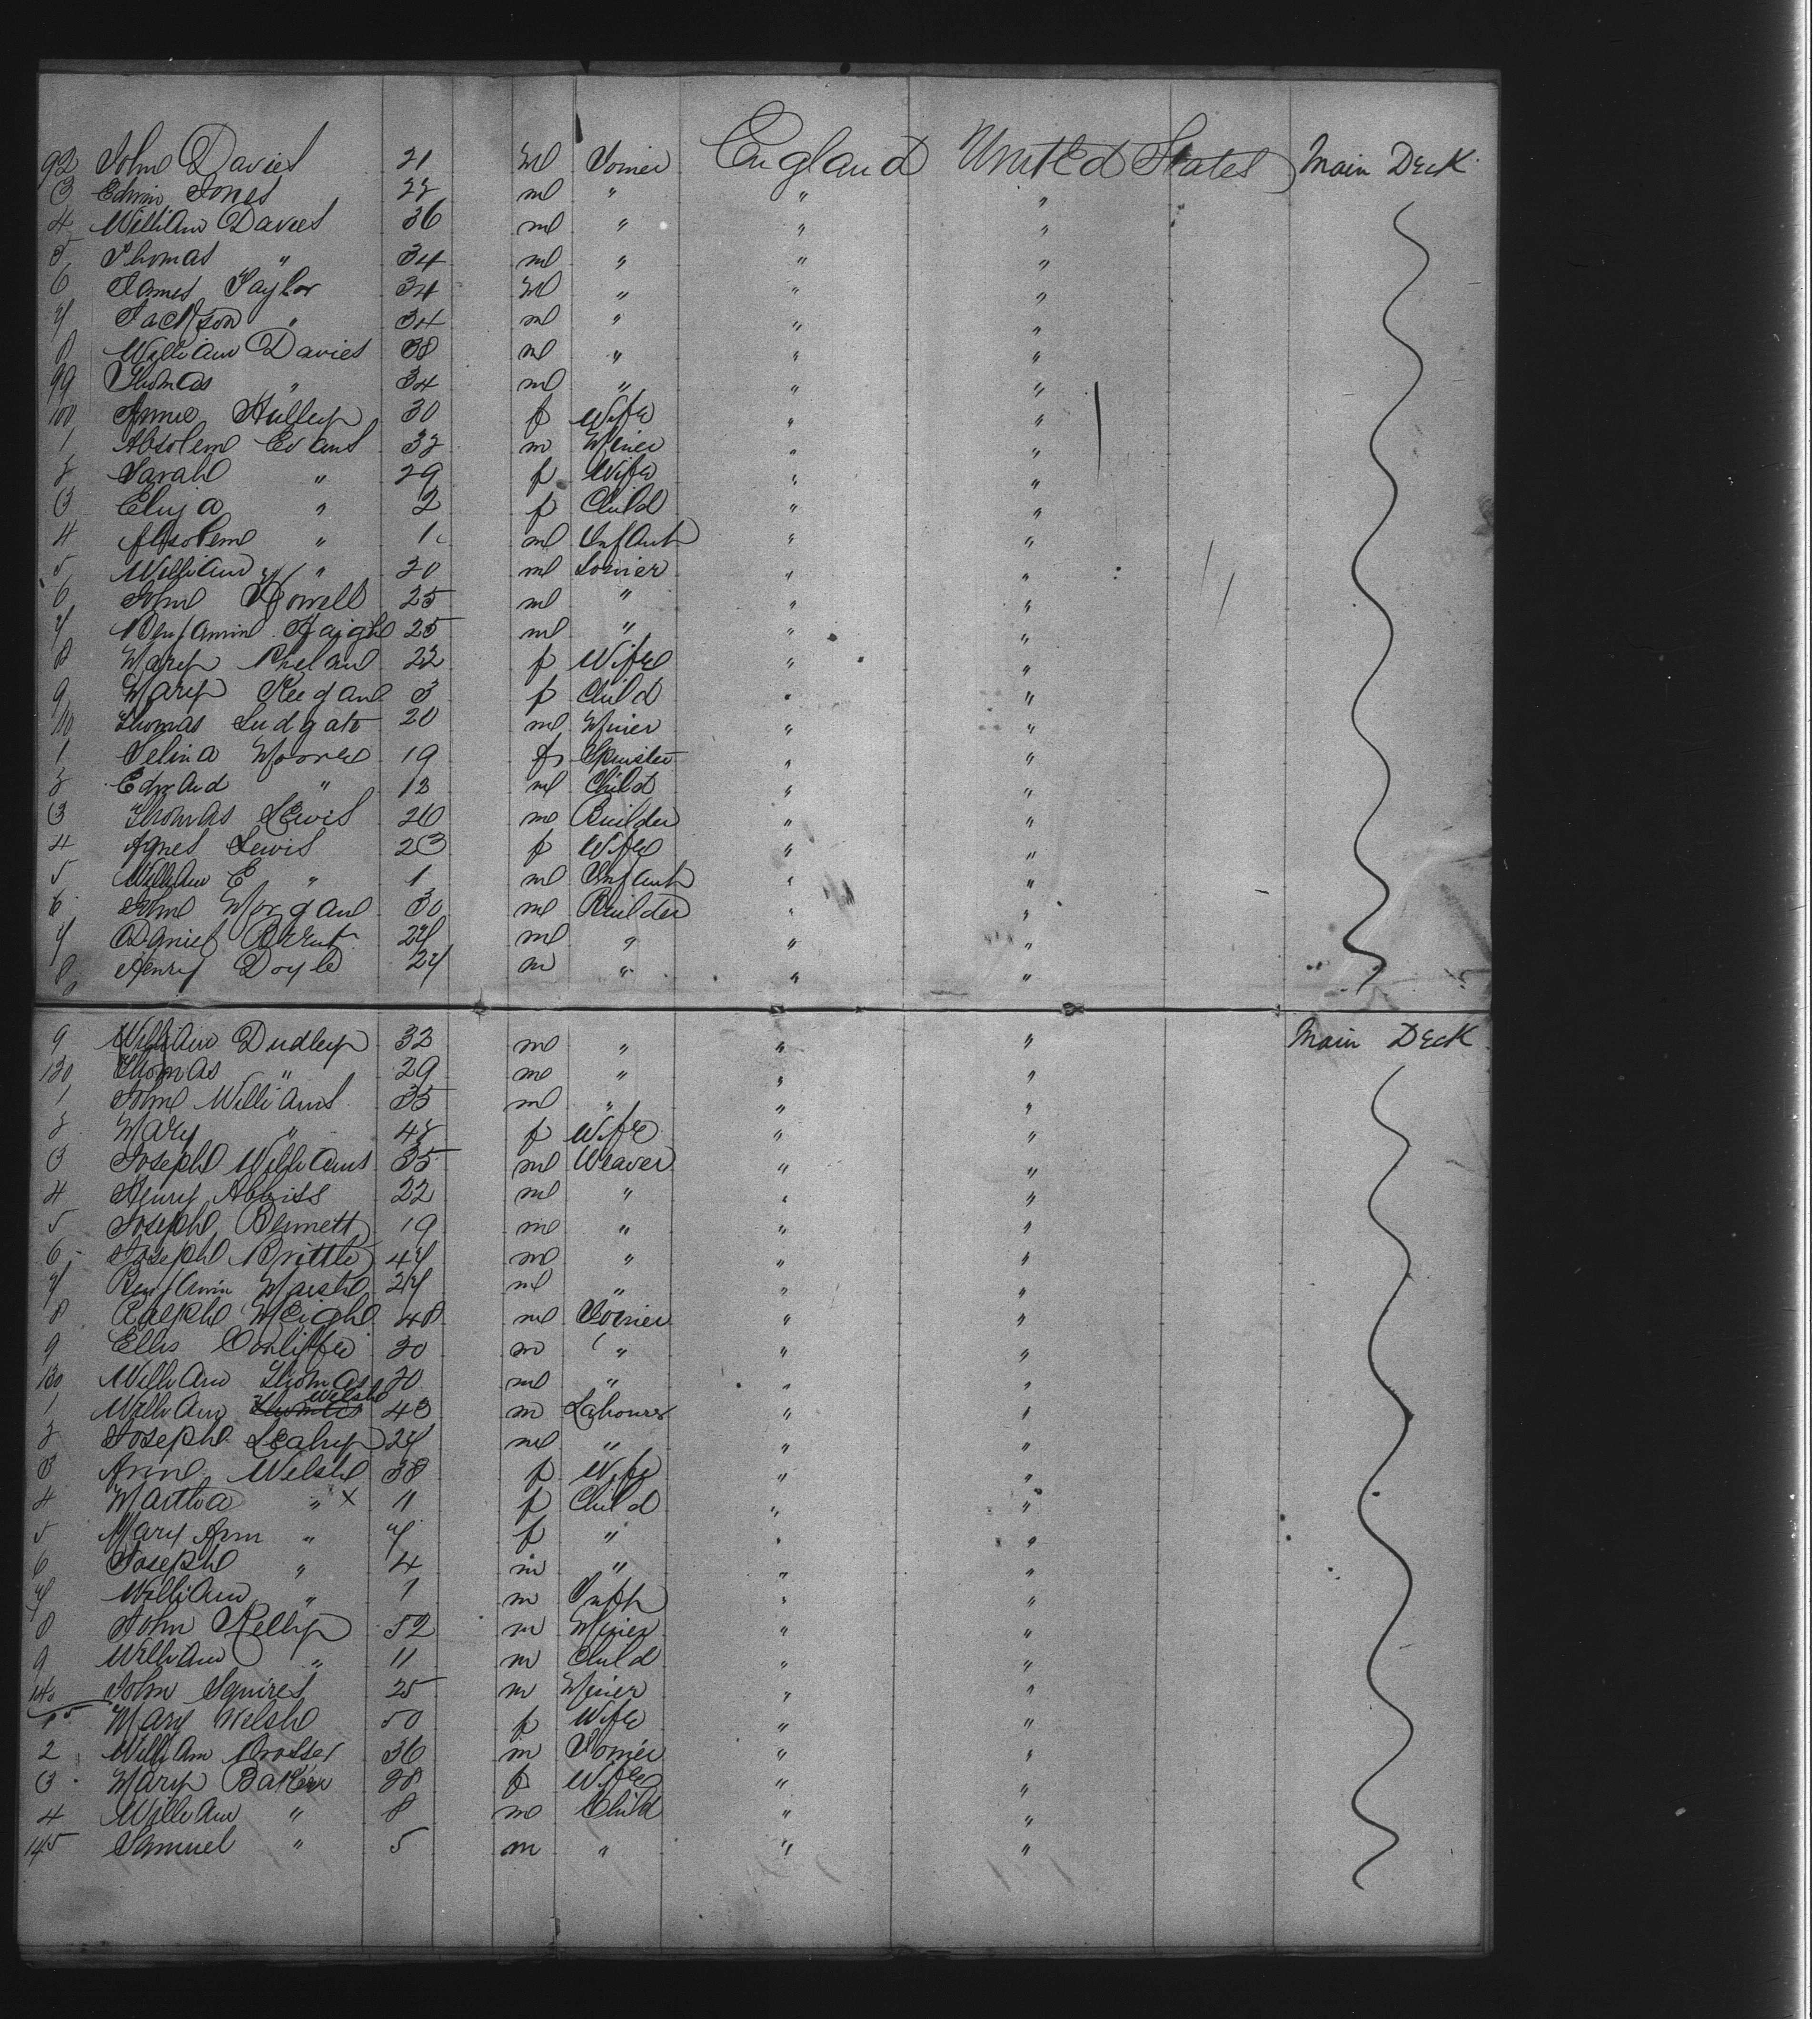 92 John Davies 21 m Joiner England United States Main Deck
3 Edwin Jones 22 m " " "
4 William Davies 36 m " " "
5 Thomas " 34 m " " "
6 James Taylor 34 m " " "
7 Jackson " 34 m " " "
8 William Davies 38 m " " "
99 Thomas " 34 m " " "
100 Annie 30 f Wife " "
1 Absolem Evans 32 m Miner " "
2 Sarah " 29 f Wife " "
3 Eliza " 2 f Child " "
4 Absolem " 1 m Infant " "
5 William " 20 m Joiner " "
6 John Howell 25 m " " "
7 Benjamin Haigh 25 m " " "
8 Mary Phelan 22 f Wife " "
9 Mary Keegan 3 f Child " "
110 Thomas Ludgate 20 m Miner " "
1 Selina Moore 19 f Spinster " "
2 Edward " 12 m Child " "
3 Thomas Lewis 26 m Builder " "
4 Agnes Lewis 23 f Wife " "
5 William E " 1 m Infant " "
6 John Morgan 30 m Builder " "
7 Daniel Brent 27 m " " "
8 Henry Doyle 27 m " " "
9 William Dudley 32 m " " " Main Deck
120 Thomas " 29 m " " "
1 John Williams 35 m " " "
2 Mary " 42 f Wife " "
3 Joseph Williams 35 m Weaver " "
4 Henry Abbiss 22 m " " "
5 Joseph Bennett 19 m " " "
6 Joseph Brittle 47 m " " "
7 Benjamin 27 m " " "
8 Ralph 48 m Joiner " "
9 Ellis Conliffe 20 m " " "
130 William Thomas 20 m " " "
1 William Welsh 43 m Labourer " "
2 Joseph Leahy 27 m " " "
3 Anne Welsh 38 f Wife " "
4 Martha " x 11 f Child " "
5 Mary Ann " 7 f " " "
6 Joseph " 4 m " " "
7 William " 1 m Inft " "
8 John Kelly 52 m Miner " "
9 William " 11 m Child " "
140 John Squires 25 m Miner " "
1 Mary Welsh 50 f Wife " "
2 William Prosser 36 m Joiner " "
3 Mary Baker 28 f Wife " "
4 William " 8 m Child " "
145 Samuel " 5 m " " "